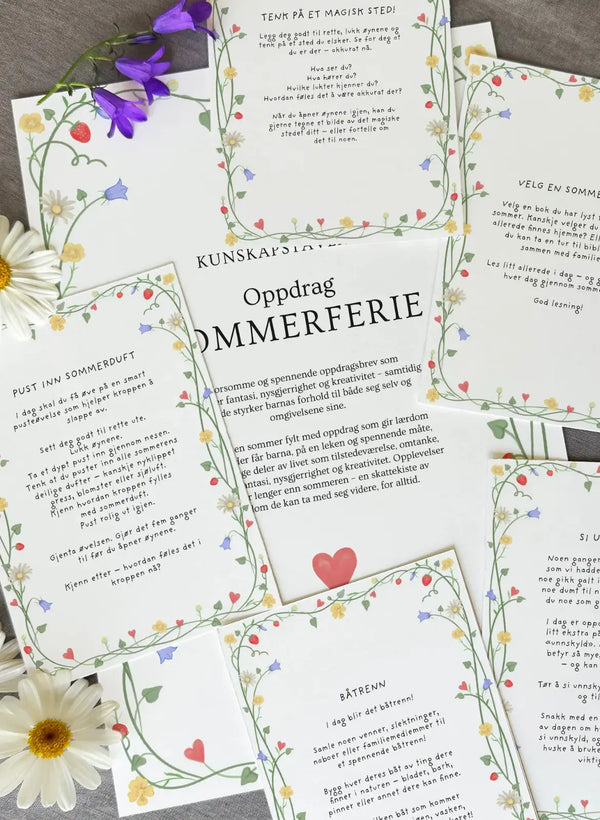 TENK PÅ ET MAGISK STED!
Legg deg godt til rette, lukk øynene og
tenk på et sted du elsker. Se for deg at
du er der – akkurat nå.
Hva ser du?
Hva hører du?
Hvilke lukter kjenner du?
Hvordan føles det å være akkurat der?
Når du åpner øynene igjen, kan du
gjerne tegne et bilde av det magiske
stedet ditt – eller fortelle om
det til noen.
VELG EN SOMME
Velg en bok du har lyst t
sommer. Kanskje velger du
allerede finnes hjemme? Ell
du kan ta en tur til bibl
sammen med familie
Les litt allerede i dag – og g
hver dag gjennom somm
God lesning!
KUNSKAPSTAVE
Oppdrag
OMMERFERIE
orsomme og spennende oppdragsbrev som
er fantasi, nysgjerrighet og kreativitet – samtidig
de styrker barnas forhold til både seg selv og
omgivelsene sine.
en sommer fylt med oppdrag som gir lærdom
der får barna, på en leken og spennende måte,
ge deler av livet som tilstedeværelse, omtanke,
antasi, nysgjerrighet og kreativitet. Opplevelser
r lenger enn sommeren – en skattekiste av
om de kan ta med seg videre, for alltid.
PUST INN SOMMERDUFT
I dag skal du få øve på en smart
pusteøvelse som hjelper kroppen å
slappe av.
Sett deg godt til rette ute.
Lukk øynene.
Ta et dypt pust inn gjennom nesen.
Tenk at du puster inn alle sommerens
deilige dufter – kanskje nyklippet
gress, blomster eller sjøluft.
Kjenn hvordan kroppen fylles
med sommerduft.
Pust rolig ut igjen.
Gjenta øvelsen. Gjør det fem ganger
til før du åpner øynene.
Kjenn etter – hvordan føles det i
kroppen nå?
SI U
Noen ganger
som vi hadde
noe gikk galt i
noe dumt til n
du noe som g
I dag er oppd
litt ekstra på
«unnskyld».
betyr så mye,
– og kan
Tør å si unnsky
og til
Snakk med en
si unnskyld, og
huske å bruke
viktig
BÅTRENN
I dag blir det båtrenn!
Samle noen venner, slektninger,
naboer eller familiemedlemmer til
et spennende båtrenn!
Bygg hver deres båt av ting dere
finner i naturen – blader, bark,
pinner eller annet dere kan finne.
hvilken båt som kommer